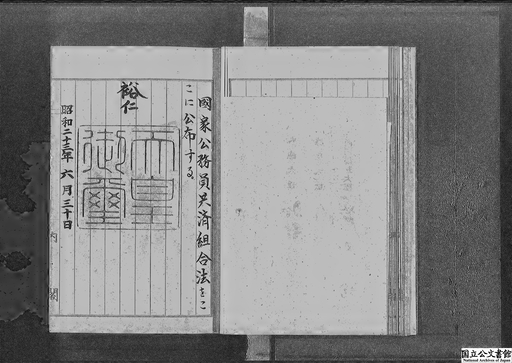 國家公務員共済組合法をこ
こに公布する。
裕仁
天皇
御璽
昭和二十三年六月三十日
内閣
国立公文書館
National Archives of Japan